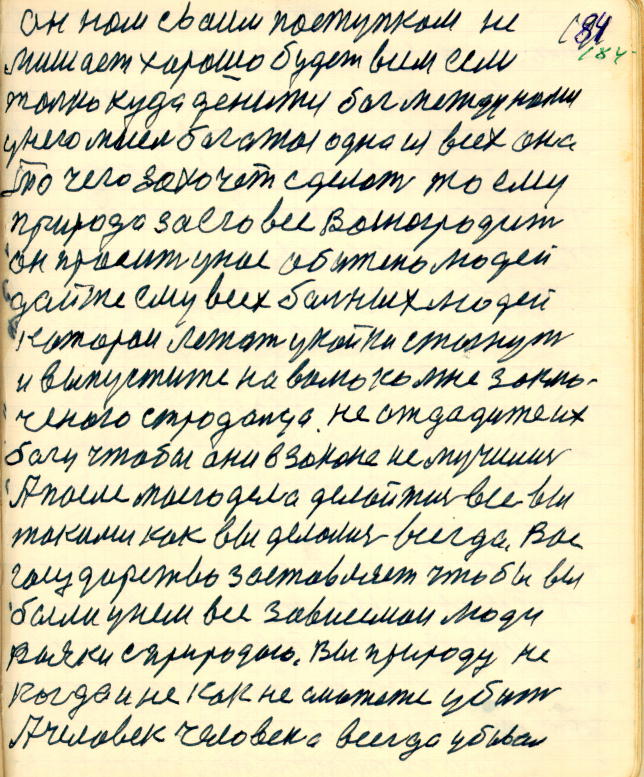 он нам своим поступком не 184
мишает хорошо будет всим если 184-
толко куда денити бог между нами
у него мисел богатоя одна из всех она
Што чего захочет сделат то ему
природа за его все возногродит
он просит у нас обижено людей
дайте ему всех болних людей
которои лежат у койки стогнут
и выпустите на волю ко мне заклю-
ченого стродалца не отдадите их
богу чтобы они в законе не мучилис
А после моего дела делайтис все вы
такими как вы делалис всегда. Вас
государство заставляет чтобы вы
были у нем все зависемаи люди
вояки с природою. Вы природу не
когда и не как не сможете убит
А человек человека всегда убивал